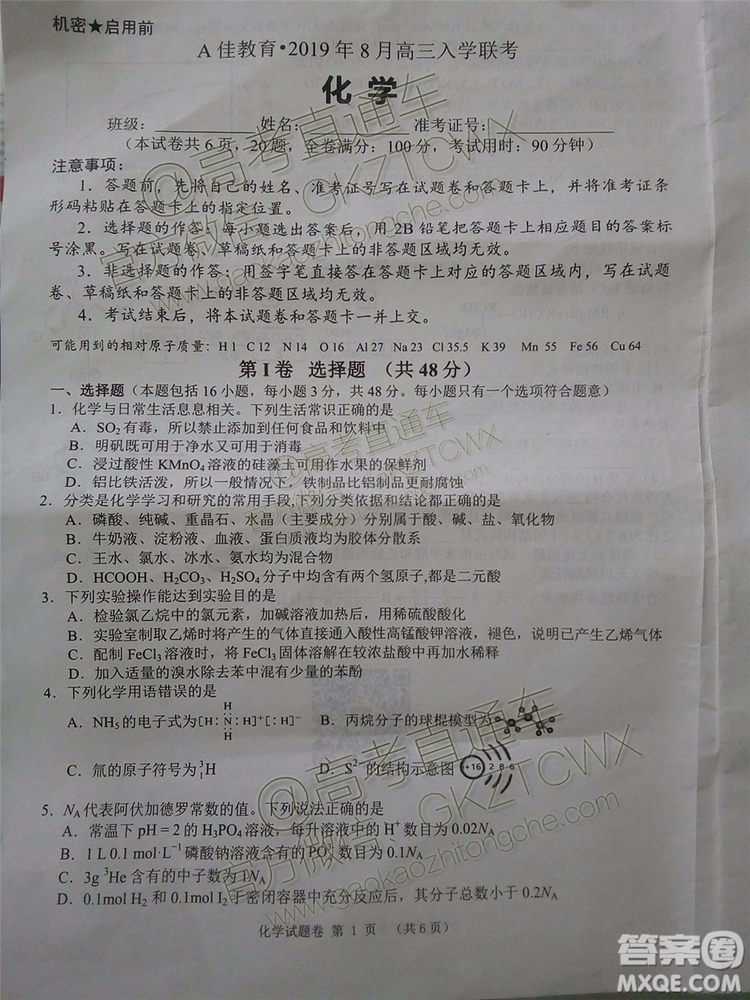 机密★启用前
A 佳教育•2019 年 8 月高三入学联考
化 学
班级：____ 姓名：____ 准考证号：____
（本试卷共 6 页，20 题，全卷满分：100 分，考试用时：90 分钟）
注意事项：
1．答题前，先将自己的姓名、准考证号写在试题卷和答题卡上，并将准考证条
形码粘贴在答题卡上的指定位置。
2．选择题的作答：每小题选出答案后，用 2B 铅笔把答题卡上相应题目的答案标
号涂黑。写在试题卷、草稿纸和答题卡上的非答题区域均无效。
3．非选择题的作答：用签字笔直接答在答题卡上对应的答题区域内，写在试题
卷、草稿纸和答题卡上的非答题区域均无效。
4．考试结束后，将本试题卷和答题卡一并上交。
可能用到的相对原子质量：H 1 C 12 N 14 O 16 Al 27 Na 23 Cl 35.5 K 39 Mn 55 Fe 56 Cu 64
第 I 卷 选择题 （共 48 分）
一、选择题（本题包括 16 小题，每小题 3 分，共 48 分。每小题只有一个选项符合题意）
1．化学与日常生活息息相关。下列生活常识正确的是
A．SO₂ 有毒，所以禁止添加到任何食品和饮料中
B．明矾既可用于净水又可用于消毒
C．浸过酸性 KMnO₄ 溶液的硅藻土可用作水果的保鲜剂
D．铝比铁活泼，所以一般情况下，铁制品比铝制品更耐腐蚀
2．分类是化学学习和研究的常用手段，下列分类依据和结论都正确的是
A．磷酸、纯碱、重晶石、水晶（主要成分）分别属于酸、碱、盐、氧化物
B．牛奶液、淀粉液、血液、蛋白质液均为胶体分散系
C．王水、氯水、冰水、氨水均为混合物
D．HCOOH、H₂CO₃、H₂SO₄ 分子中均含有两个氢原子，都是二元酸
3．下列实验操作能达到实验目的是
A．检验氯乙烷中的氯元素，加碱溶液加热后，用稀硫酸酸化
B．实验室制取乙烯时将产生的气体直接通入酸性高锰酸钾溶液，褪色，说明已产生乙烯气体
C．配制 FeCl₃ 溶液时，将 FeCl₃ 固体溶解在较浓盐酸中再稀释
D．加入适量的溴水除去苯中混有少量的苯酚
4．下列化学用语错误的是
A．NH₅ 的电子式为[H:N:H]⁺[:H]⁻ B．丙烷分子的球棍模型为
C．氚的原子符号为 ³₁H D．S²⁻ 的结构示意图 +16 2 8 6
5．Nₐ 代表阿伏加德罗常数的值。下列说法正确的是
A．常温下 pH = 2 的 H₃PO₄ 溶液，每升溶液中的 H⁺ 数目为 0.02Nₐ
B．1 L 0.1 mol·L⁻¹ 磷酸钠溶液含有的 PO₄³⁻ 数目为 0.1Nₐ
C．3g ³He 含有的中子数为 1Nₐ
D．0.1mol H₂ 和 0.1mol I₂ 于密闭容器中充分反应后，其分子总数小于 0.2Nₐ
化学试题卷 第 1 页 （共 6 页）
@高考直通车
官方微信：GKZTCWX
www.gaokaozhitongche.com
答案圈
MXQE.COM